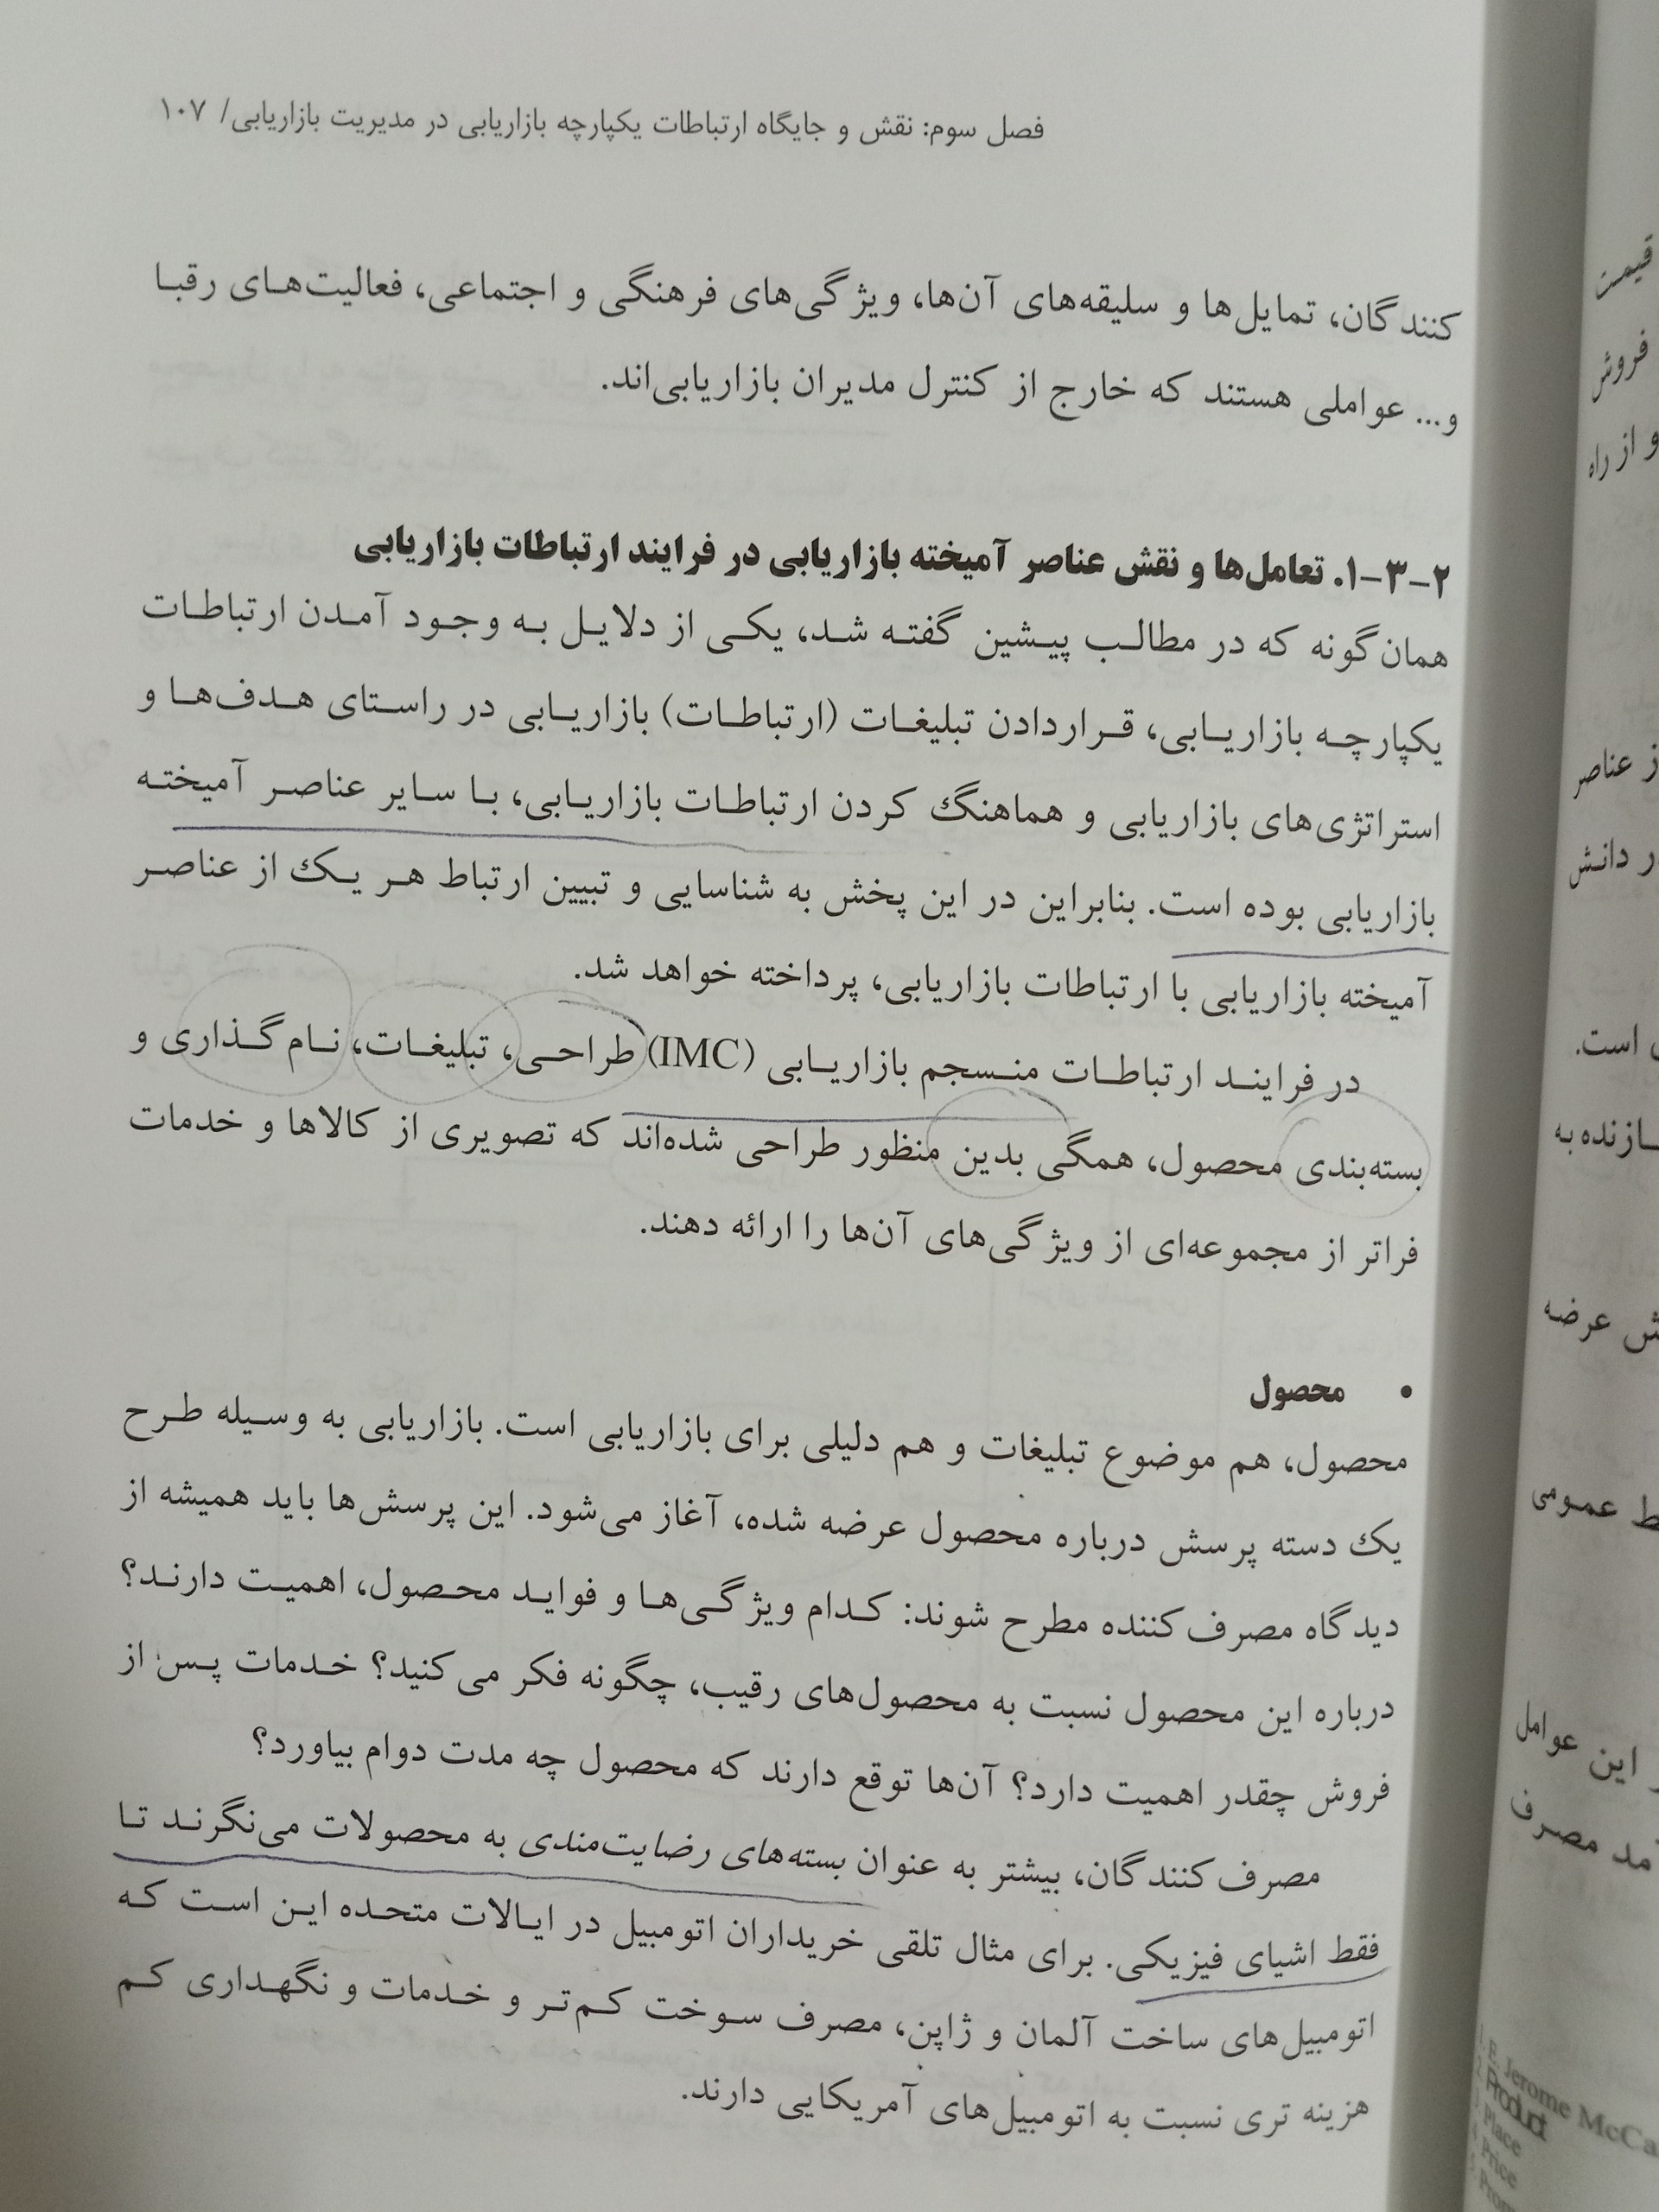 فصل سوم: نقش و جایگاه ارتباطات یکپارچه بازاریابی در مدیریت بازاریابی/ ۱۰۷
کنندگان، تمایل‌ها و سلیقه‌های آن‌ها، ویژگی‌های فرهنگی و اجتماعی، فعالیت‌های رقبا
و... عواملی هستند که خارج از کنترل مدیران بازاریابی‌اند.
۲-۳-۱. تعامل‌ها و نقش عناصر آمیخته بازاریابی در فرایند ارتباطات بازاریابی
همان‌گونه که در مطالب پیشین گفته شد، یکی از دلایل به وجود آمدن ارتباطات
یکپارچه بازاریابی، قراردادن تبلیغات (ارتباطات) بازاریابی در راستای هدف‌ها و
استراتژی‌های بازاریابی و هماهنگ کردن ارتباطات بازاریابی، با سایر عناصر آمیخته
بازاریابی بوده است. بنابراین در این پخش به شناسایی و تبیین ارتباط هر یک از عناصر
آمیخته بازاریابی با ارتباطات بازاریابی، پرداخته خواهد شد.
در فرایند ارتباطات منسجم بازاریابی (IMC) طراحی، تبلیغات، نام‌گذاری و
بسته‌بندی محصول، همگی بدین منظور طراحی شده‌اند که تصویری از کالاها و خدمات
فراتر از مجموعه‌ای از ویژگی‌های آن‌ها را ارائه دهند.
• محصول
محصول، هم موضوع تبلیغات و هم دلیلی برای بازاریابی است. بازاریابی به وسیله طرح
یک دسته پرسش درباره محصول عرضه شده، آغاز می‌شود. این پرسش‌ها باید همیشه از
دیدگاه مصرف‌کننده مطرح شوند: کدام ویژگی‌ها و فواید محصول، اهمیت دارند؟
درباره این محصول نسبت به محصول‌های رقیب، چگونه فکر می‌کنید؟ خدمات پس از
فروش چقدر اهمیت دارد؟ آن‌ها توقع دارند که محصول چه مدت دوام بیاورد؟
مصرف‌کنندگان، بیشتر به عنوان بسته‌های رضایت‌مندی به محصولات می‌نگرند تا
فقط اشیای فیزیکی. برای مثال تلقی خریداران اتومبیل در ایالات متحده این است که
اتومبیل‌های ساخت آلمان و ژاپن، مصرف سوخت کم‌تر و خدمات و نگهداری کم
هزینه تری نسبت به اتومبیل‌های آمریکایی دارند.
قیمت
فروش
و از راه
عناصر
دانش
است.
عرضه
عمومی
این عوامل
مصرف
E. Jerome
Product
Place
Price